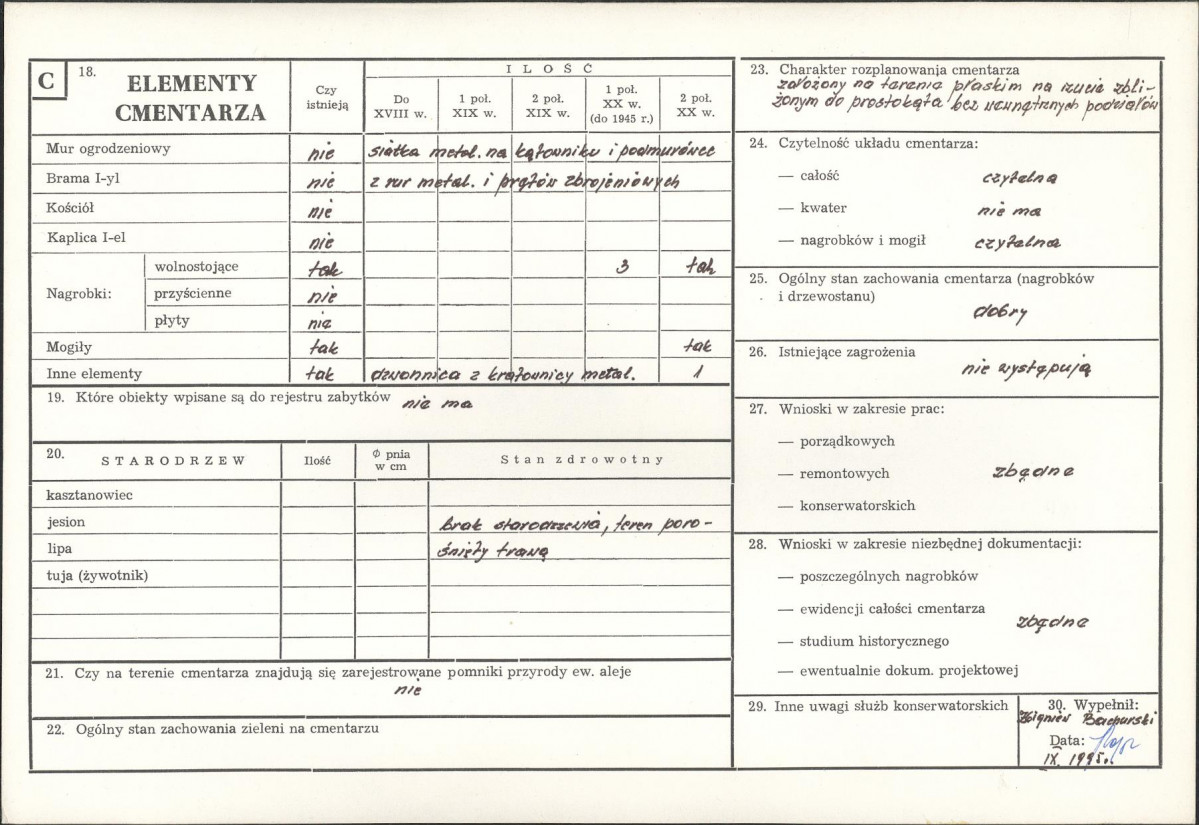 C 18. ELEMENTY CMENTARZA
Czy istnieją
ILOŚĆ
Do XVIII w.
1 poł. XIX w.
2 poł. XIX w.
1 poł. XX w. (do 1945 r.)
2 poł. XX w.
Mur ogrodzeniowy nie siatka metal. na kątowniku i podmurówce
Brama I-yl nie z rur metal. i prętów zbrojeniowych
Kościół nie
Kaplica I-el nie
Nagrobki:
wolnostojące tak 3 tak
przyścienne nie
płyty nie
Mogiły tak tak
Inne elementy tak dzwonnica z kratownicy metal. 1
19. Które obiekty wpisane są do rejestru zabytków nie ma
20. STARODRZEW Ilość Φ pnia w cm Stan zdrowotny
kasztanowiec
jesion brak starodrzewia, teren poro-
lipa śnięty trawą
tuja (żywotnik)
21. Czy na terenie cmentarza znajdują się zarejestrowane pomniki przyrody ew. aleje
nie
22. Ogólny stan zachowania zieleni na cmentarzu
23. Charakter rozplanowania cmentarza
założony na terenie płaskim na rzucie zbli-
żonym do prostokąta bez wewnętrznych podziałów
24. Czytelność układu cmentarza:
— całość czytelna
— kwater nie ma
— nagrobków i mogił czytelna
25. Ogólny stan zachowania cmentarza (nagrobków
i drzewostanu)
dobry
26. Istniejące zagrożenia
nie występują
27. Wnioski w zakresie prac:
— porządkowych
— remontowych zbędne
— konserwatorskich
28. Wnioski w zakresie niezbędnej dokumentacji:
— poszczególnych nagrobków
— ewidencji całości cmentarza
zbędne
— studium historycznego
— ewentualnie dokum. projektowej
29. Inne uwagi służb konserwatorskich
30. Wypełnił:
Zbigniew
Data:
IX. 1995r.